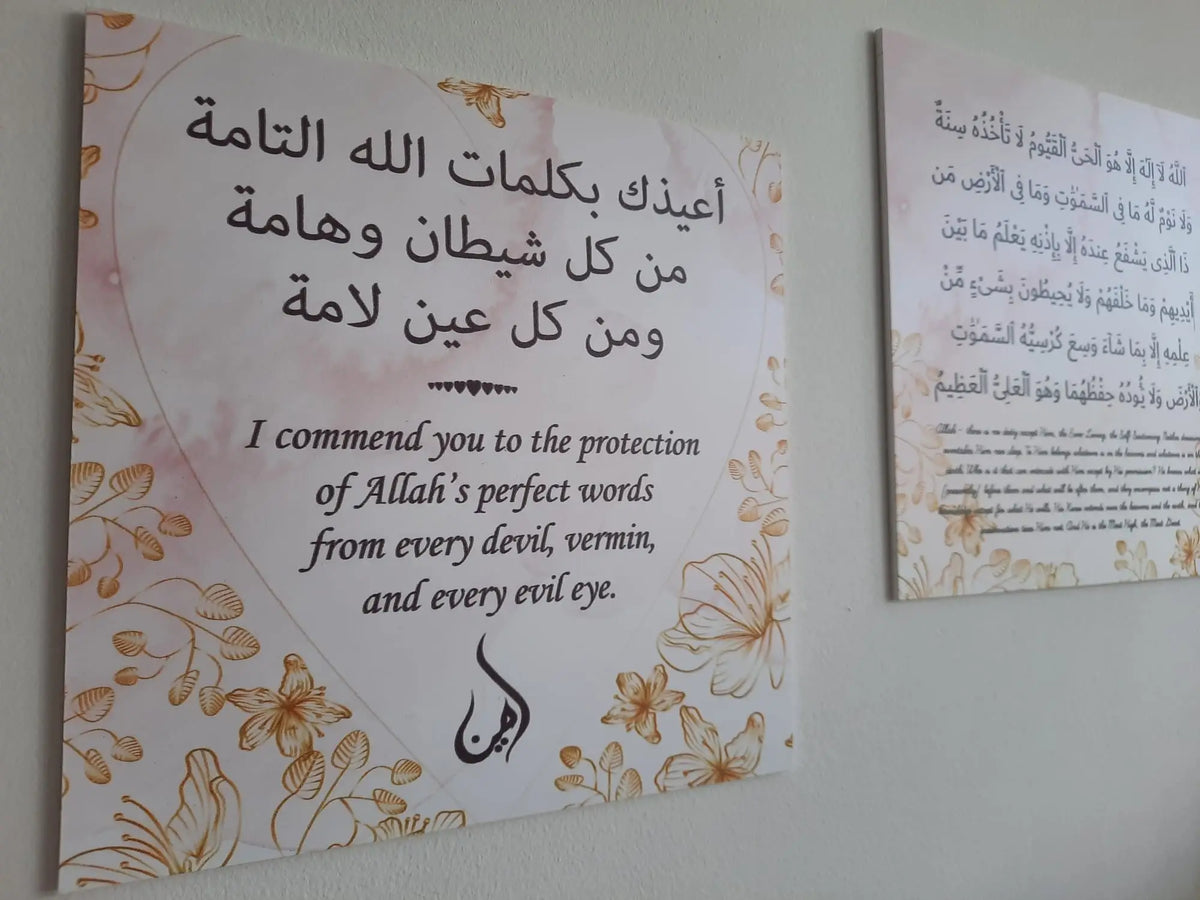 أعيذك بكلمات الله التامة
من كل شيطان وهامة
ومن كل عين لامة
I commend you to the protection
of Allah's perfect words
from every devil, vermin,
and every evil eye.
امين
ٱللَّهُ لَآ إِلَٰهَ إِلَّا هُوَ ٱلْحَىُّ ٱلْقَيُّومُ لَا تَأْخُذُهُۥ سِنَةٌ
وَلَا نَوْمٌ لَّهُۥ مَا فِى ٱلسَّمَٰوَٰتِ وَمَا فِى ٱلْأَرْضِ مَن
ذَا ٱلَّذِى يَشْفَعُ عِندَهُۥٓ إِلَّا بِإِذْنِهِۦ يَعْلَمُ مَا بَيْنَ
أَيْدِيهِمْ وَمَا خَلْفَهُمْ وَلَا يُحِيطُونَ بِشَىْءٍ مِّنْ
عِلْمِهِۦٓ إِلَّا بِمَا شَآءَ وَسِعَ كُرْسِيُّهُ ٱلسَّمَٰوَٰتِ
ٱلْأَرْضَ وَلَا يَـُٔودُهُۥ حِفْظُهُمَا وَهُوَ ٱلْعَلِىُّ ٱلْعَظِيمُ
Allah - there is no deity except Him, the Ever-Living, the Self-Sustaining. Neither
overtakes Him nor sleep. To Him belongs whatever is in the heavens and whatever is on the
earth. Who is it that can intercede with Him except by His permission? He knows what
before them and what will be after them, and they encompass not a thing of
except for what He wills. His Kursi extends over the heavens and the earth, and
preservation tires Him not. And He is the Most High, the Most Great.